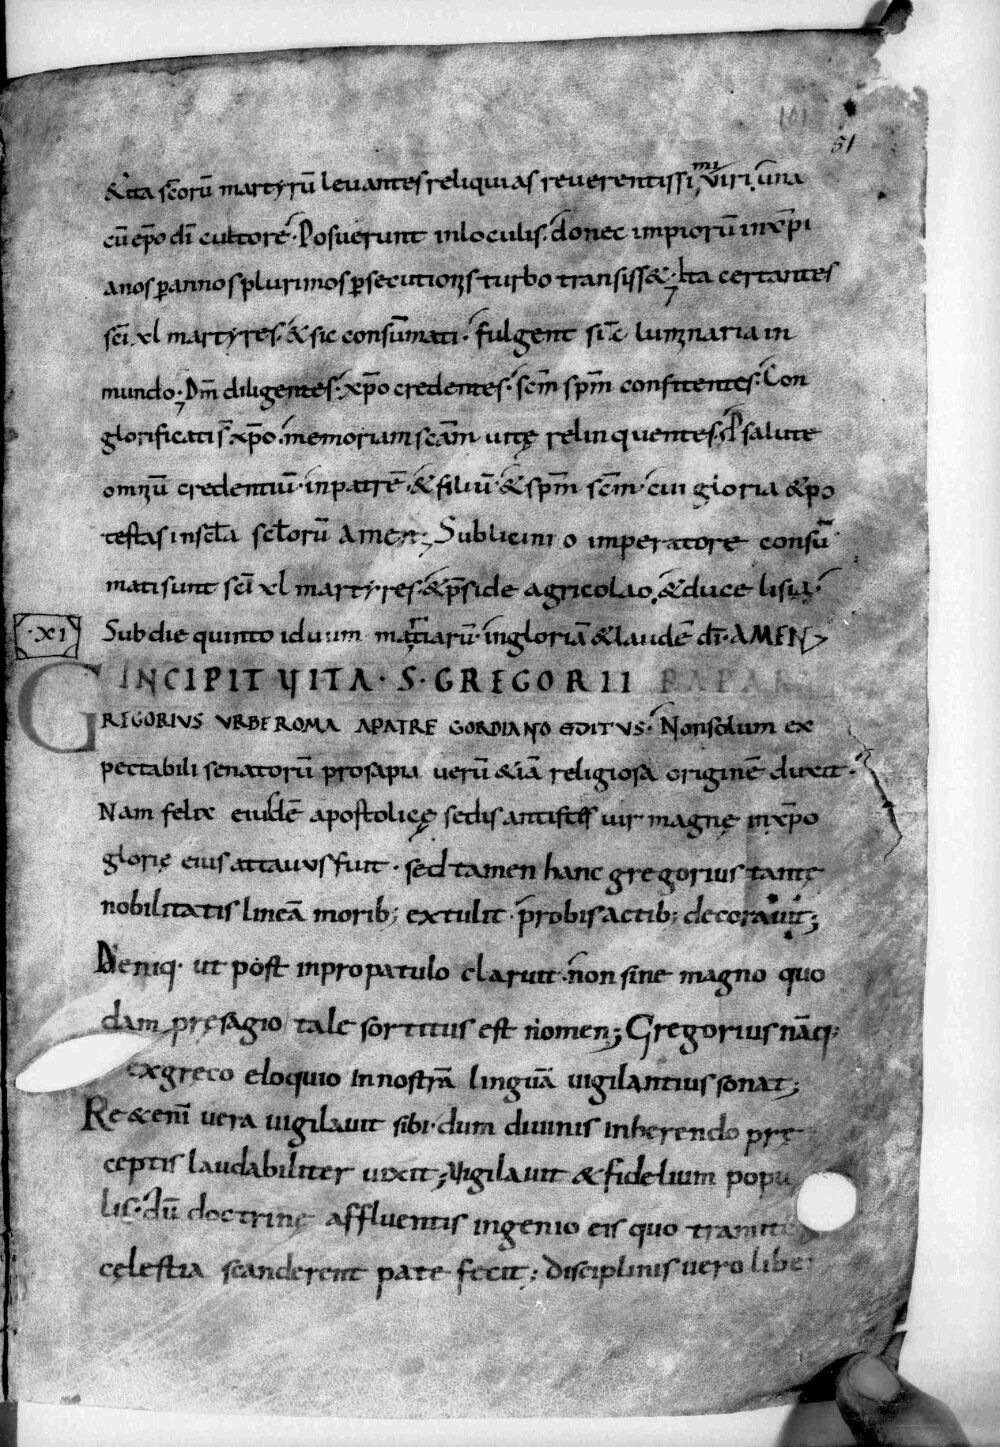 101
51
&ita sc̄orū martyrū levantes reliquias reverentissimi viri una
cū ep̄o dī cultore. Posuerunt inloculis. donec impiorū inxp̄i
anos ꝑannos plurimos ꝑsecutionis turbo transiss&; Ita certantes
sc̄i xl martyres. & sic consūmati. fulgent sic̄ luminaria in
mundo; Dn̄m diligentes. xp̄o credentes. sc̄m sp̄m confitentes. Con
glorificati xp̄o. memoriam sc̄am vitę relinquentes. ꝓ salute
omniū credentiū. inpatrē. & filiū. & sp̄m sc̄m. cui gloria & po
testas insc̄la sc̄lorū AMEN; Sublicinio imperatore consū
mati sunt sc̄i xl martyres. & p̄side agricolao. & duce lisia.
Subdie quinto iduum martiarū. ingloriā & laudē dī. AMEN;
·XI·
INCIPIT VITA · S · GREGORII PAPAE
GREGORIUS URBE ROMA APATRE GORDIANO EDITUS. Non solum ex
pectabili senatorū prosapia verū & iā religiosa originē duxit.
Nam felix eiusdē apostolicę sedis antistes vir magnę inxp̄o
glorię eius attavus fuit. sed tamen hanc gregorius tantę
nobilitatis lineā morib; extulit. probis actib; decoravit;
Deniq. ut post inpropatulo claruit. non sine magno quo
dam pręsagio tale sortitus est nomen; Gregorius nāq;
exgręco eloquio innostrā linguā vigilantius sonat;
Re & enī vera vigilavit sibi. dum divinis inherendo prę
ceptis laudabiliter vixit; Vigilavit & fidelium popu
lis. dū doctrinę affluentis ingenio eis quo tramite
cęlestia scanderent pate fecit; Disciplinis vero liber